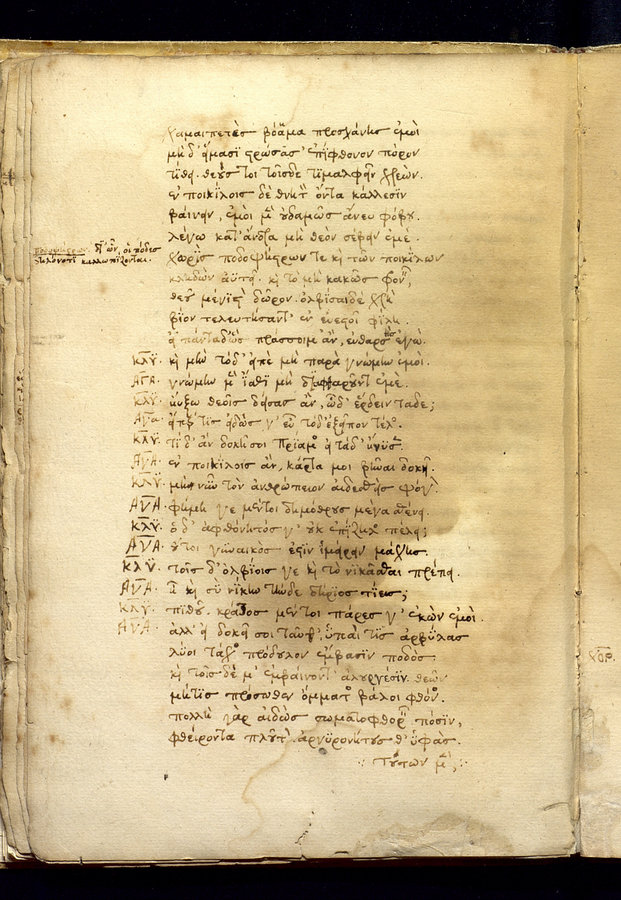 χαμαιπετὲς βόαμα προσχάνῃς ἐμοὶ
μὴ δ' εἵμασι στρώσασ' ἐπίφθονον πόρον
τίθει. θεούς τοι τοῖσδε τιμαλφεῖν χρεών.
ἐν ποικίλοις δὲ θνητὸν ὄντα κάλλεσιν
βαίνειν, ἐμοὶ μὲν οὐδαμῶς ἄνευ φόβου.
λέγω κατ' ἄνδρα μὴ θεὸν σέβειν ἐμέ.
ποδοψήστρων. δι' ὧν, οἱ πόδες
καλλωπίζονται.
χωρὶς ποδοψήστρων τε καὶ τῶν ποικίλων
κληδὼν αὐτεῖ. καὶ τὸ μὴ κακῶς φρονεῖν,
θεοῦ μέγιστον δῶρον. ὀλβίσαι δὲ χρὴ
βίον τελευτήσαντ' ἐν εὐεστοῖ φίλῃ.
εἰ πάντα δ' ὡς πράσσοιμ' ἂν, εὐθαρσὴς ἐγώ.
ΚΛΥ. καὶ μὴν τόδ' εἰπὲ μὴ παρὰ γνώμην ἐμοί.
ΑΓΑ. γνώμην μὲν ἴσθι μὴ διαφθαροῦντ' ἐμέ.
ΚΛΥ. ηὔξω θεοῖς δείσας ἂν, ὧδ' ἔρδειν τάδε;
ΑΓΑ. εἴπερ τὶς εἰδώς γ' εὖ τόδ' ἐξεῖπον τέλος.
ΚΛΥ. τί δ' ἂν δοκῇ σοι πρίαμος εἰ τάδ' ἤνυσεν.
ΑΓΑ. ἐν ποικίλοις ἂν, κάρτα μοι βῆναι δοκεῖ.
ΚΛΥ. μή νυν τὸν ἀνθρώπειον αἰδεσθῇς ψόγον.
ΑΓΑ. φήμη γε μέντοι δημόθρους μέγα σθένει.
ΚΛΥ. ὁ δ' ἀφθόνητός γ' οὐκ ἐπίζηλος πέλει;
ΑΓΑ. οὔτοι γυναικὸς ἐστὶν ἱμείρειν μάχης.
ΚΛΥ. τοῖς δ' ὀλβίοις γε καὶ τὸ νικᾶσθαι πρέπει.
ΑΓΑ. ἦ καὶ σὺ νίκην τήνδε δήριος τίεις;
ΚΛΥ. πιθοῦ. κράτος μέντοι πάρες γ' ἑκὼν ἐμοί.
ΑΓΑ. ἀλλ' εἰ δοκεῖ σοι ταῦθ', ὑπαί τις ἀρβύλας
λύοι τάχος πρόδουλον ἔμβασιν ποδός
καὶ τοῖσδέ μ' ἐμβαίνονθ' ἁλουργέσιν θεῶν
μή τις πρόσωθεν ὄμματος βάλοι φθόνος.
πολλὴ γὰρ αἰδὼς σωματοφθορεῖν ποσὶν,
φθείροντα πλοῦτον ἀργυρωνήτους θ' ὑφάς.
τούτων μὲν;